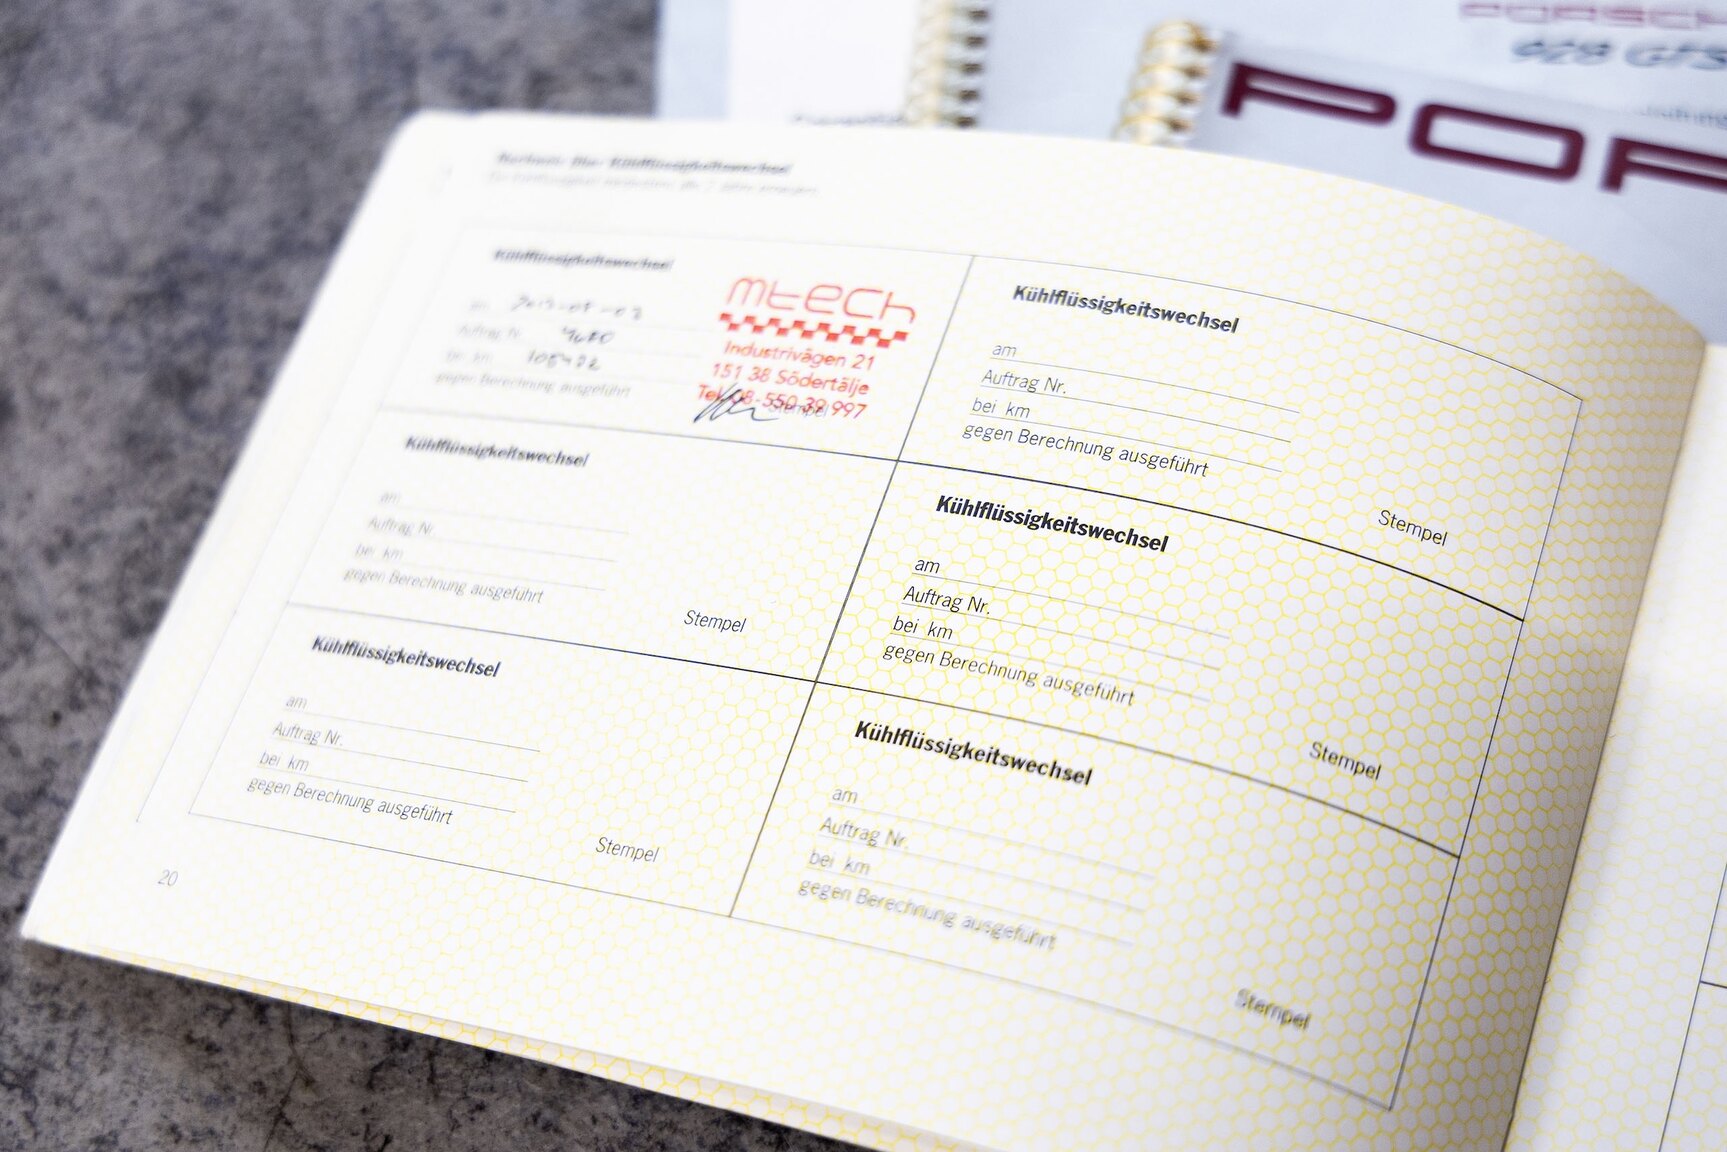 PORSCH
928 GTS
POR
Nachweis über Kühlflüssigkeitswechsel
Kühlflüssigkeitswechsel
am
Auftrag Nr.
bei km 105402
gegen Berechnung ausgeführt
mtech
Industrivägen 21
151 38 Södertälje
Tel 08-550 39 997
Stempel
Kühlflüssigkeitswechsel
am
Auftrag Nr.
bei km
gegen Berechnung ausgeführt
Stempel
Kühlflüssigkeitswechsel
am
Auftrag Nr.
bei km
gegen Berechnung ausgeführt
Stempel
Kühlflüssigkeitswechsel
am
Auftrag Nr.
bei km
gegen Berechnung ausgeführt
Stempel
Kühlflüssigkeitswechsel
am
Auftrag Nr.
bei km
gegen Berechnung ausgeführt
Stempel
Kühlflüssigkeitswechsel
am
Auftrag Nr.
bei km
gegen Berechnung ausgeführt
Stempel
20